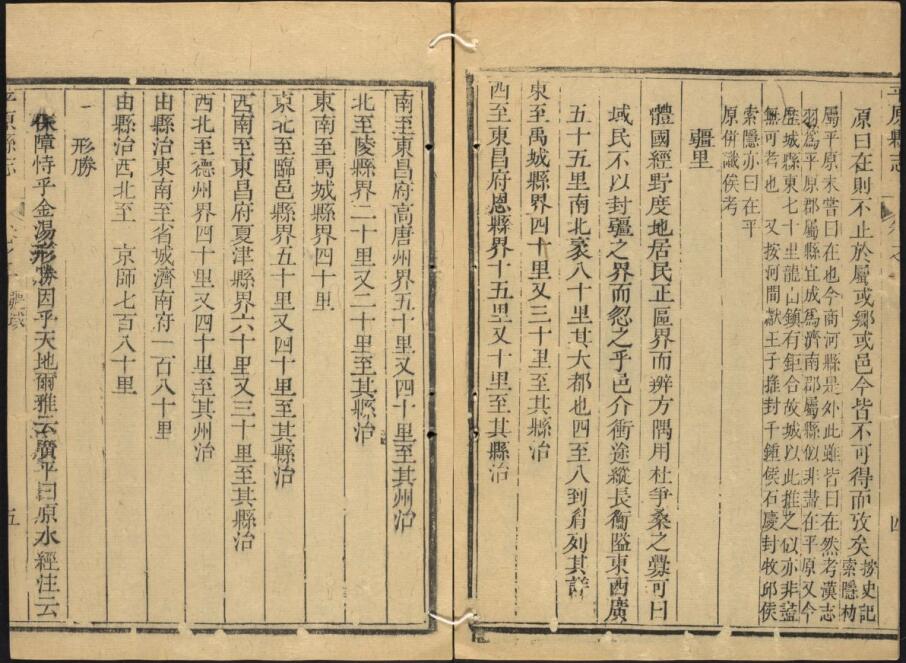 平原縣志
原曰在則不止於屬或鄉或邑今皆不可得而攷矣
按史記
索隱
屬平原未嘗曰在也今商河縣是外此雖皆曰在然考漢志
羽爲平原郡屬縣宜成爲濟南郡屬縣似非盡在平原又今
歷城縣東七十里龍山鎮有鉅合故城以此推之似亦非盡
無可考也 又按河間獻王子推封千鍾侯石慶封牧邱侯
索隱亦曰在平
原併識俟考
疆里
體國經野度地居民正區界而辨方隅用杜爭桑之釁可曰
域民不以封疆之界而忽之乎邑介衝途縱長衡隘東西廣
五十五里南北袤八十里其大都也四至八到肩列其詳
東至禹城縣界四十里又三十里至其縣治
西至東昌府恩縣界十五里又十里至其縣治
四
南至東昌府高唐州界五十里又四十里至其州治
北至陵縣界二十里又二十里至其縣治
東南至禹城縣界四十里
東北至臨邑縣界五十里又四十里至其縣治
西南至東昌府夏津縣界六十里又三十里至其縣治
西北至德州界四十里又四十里至其州治
由縣治東南至省城濟南府一百八十里
由縣治西北至 京師七百八十里
形勝
保障恃乎金湯形勝因乎天地爾雅云廣平曰原水經注云
平原縣志
五